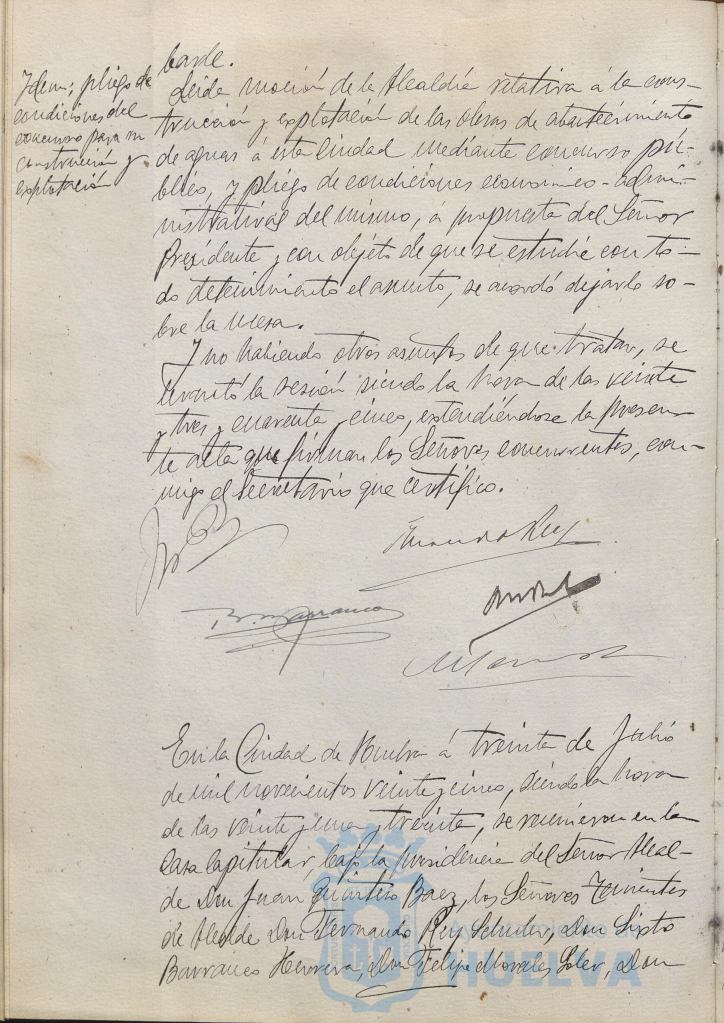 Idem; pliego de
condiciones del
concurso para su
construcción y
explotación
barle.
Leida moción de la Alcaldía relativa á la cons-
trucción y explotación de las obras de abastecimiento
de aguas á esta Ciudad mediante concurso pú-
blico, y pliego de condiciones economico-admi-
nistrativas del mismo, á propuesta del Señor
Presidente y con objeto de que se estudie con to-
do detenimiento el asunto, se acordó dejarlo so-
bre la mesa.
Y no habiendo otros asuntos de que tratar, se
levantó la sesión siendo la hora de las veinte
y tres y cuarenta y cinco, extendiéndose la presen-
te acta que firman los Señores concurrentes, con-
migo el Secretario que certifico.
Fernando Rey
B. Barranco
En la Ciudad de Huelva á treinta de Julio
de mil novecientos veinte y cinco, siendo la hora
de las veinte y una y treinta, se reunieron en la
Casa Capitular, bajo la presidencia del Señor Alcal-
de Don Juan Quintero Baez, los Señores Tenientes
de Alcalde Don Fernando Rey, Don Sixto
Barranco Herrera, Don Felipe Morales Soler, Don
HUELVA